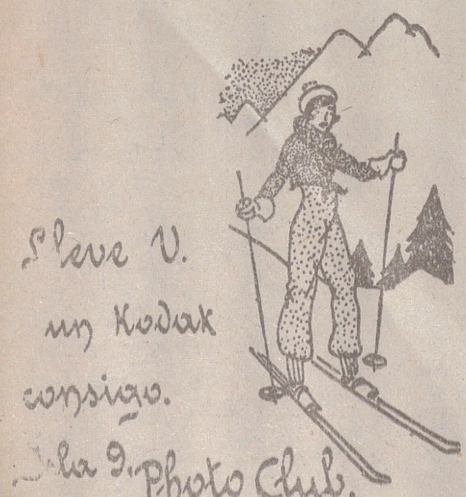 Lleve V.
un Kodak
consigo.
la
Photo Club.